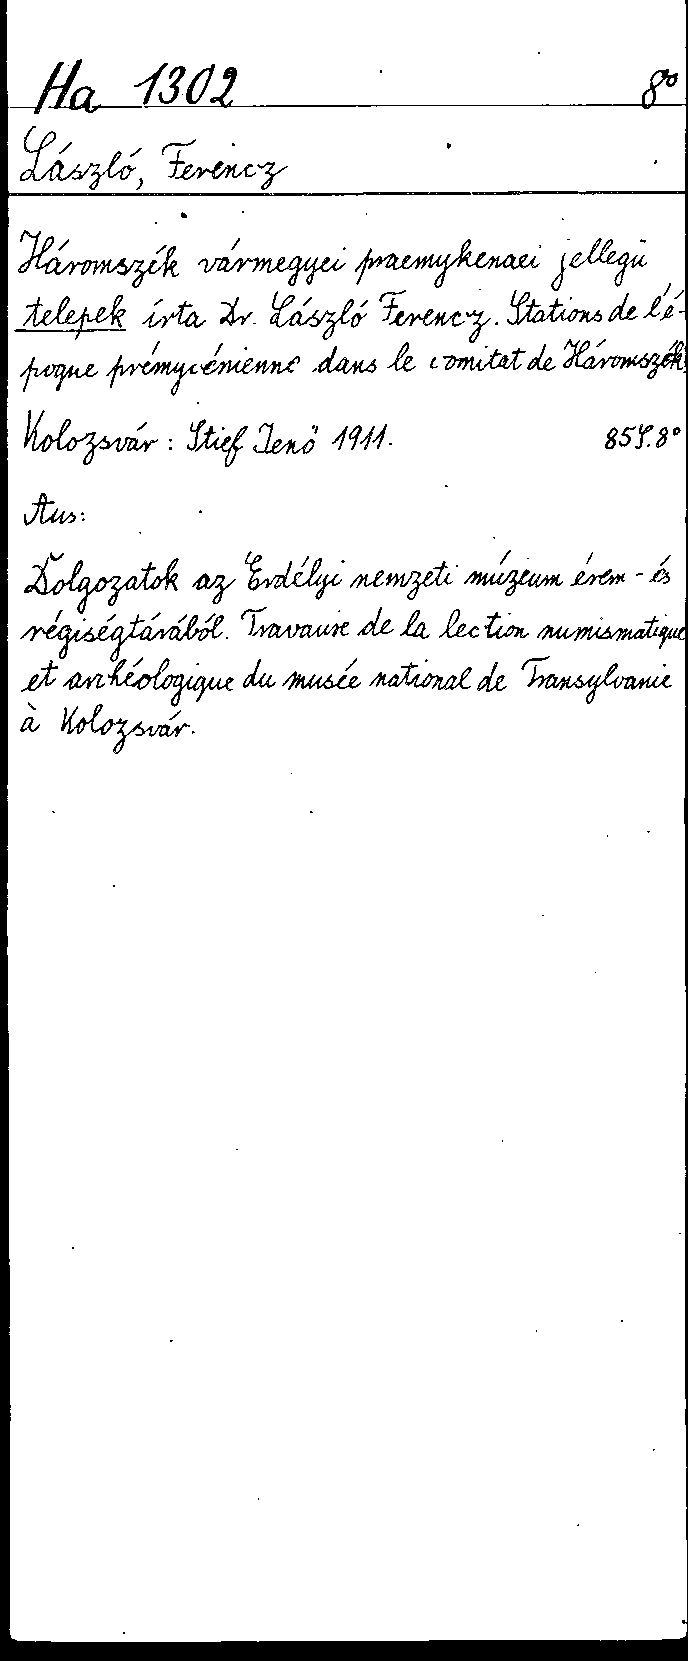 Ha 1302 8°
László, Ferencz
Háromszék vármegyei praemykenaei jellegü
telepek írta Dr. László Ferencz. Stations de l'é-
poque prémycénienne dans le comitat de Háromszék
Kolozsvár: Stief Jenö 1911. 85 S. 8°
Aus:
Dolgozatok az Erdélyi nemzeti múzeum érem- és
régiségtárából. Travaux de la lection numismatique
et archéologique du musée national de Transylvanie
à Kolozsvár.